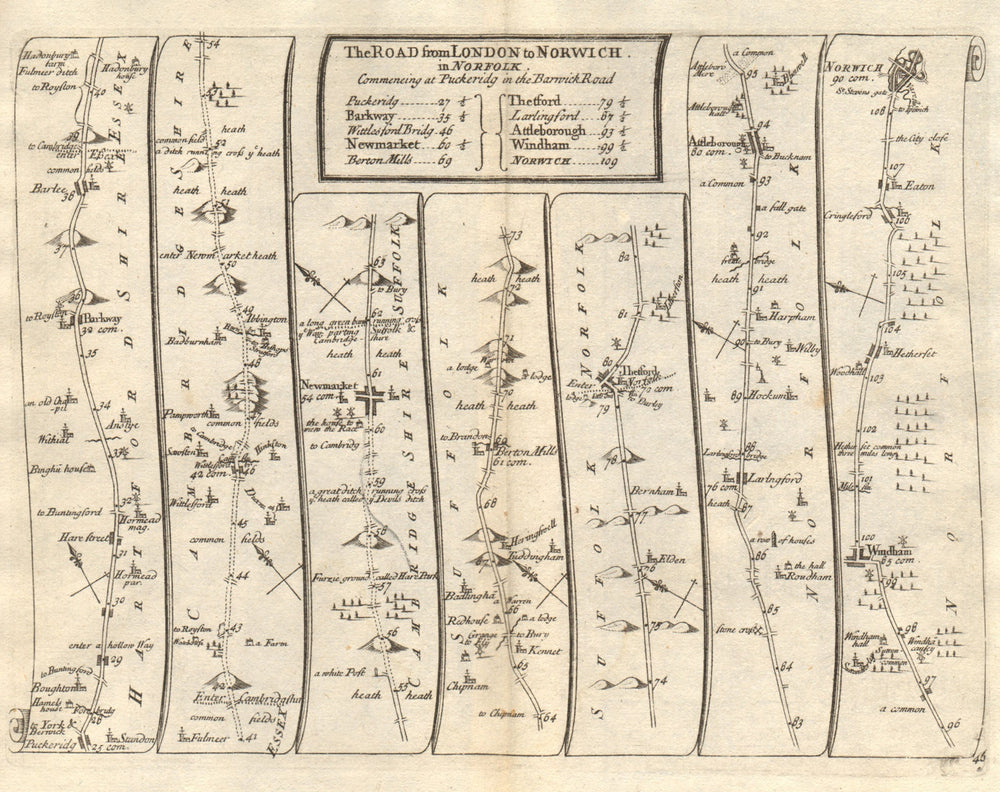 The ROAD from LONDON to NORWICH.
in NORFOLK.
Commencing at Puckeridg in the Barwick Road
Puckeridg 27 ½
Barkway 35 ½
Wittlesford Bridg. 46
Newmarket 60 ½
Berton Mills 69
Thetford 79 ½
Larlingford 87 ½
Attleborough 93 ½
Windham 99 ½
NORWICH 109
Hadonbury
farm
Hadonbury
house
Fulmer ditch
to Royston
40
39
to Cambridg
enter Essex
common fields
Barlee
38
37
36
to Royston
Barkway
32 com.
35
34
an old Cha-
pil
Anstye
Withial
33
Binghā house
32
to Buntingford
Hormead
mag.
Hare street
31
Hormead
par.
30
enter a hollow Way
29
to Buntingford
Boughton
Hamels
house
Ford bridg
28
to York &
Berwick
Puckeridg
25 com.
Standon
HARTFORDSHIRE
ESSEX
54
53
heath
common field
52
a ditch running cross yᵉ heath
heath
heath
51
enter Newmarket heath
50
49
Abbington
Badburnham
48
Pampworth
common fields
to Cambridg
Sawston
Hinkston
Wittlesford
42 com.
46
Wittlesford
45
common fields
44
43
to Royston
a Farm
42
Enter Cambridgshir
common fields
Fulmeer
41
ESSEX
CAMBRIDGESHIRE
63
to Bury
62
a long green bank running cross
yᵉ Way parting Suffolk &
Cambridge-shire
heath
heath
61
Newmarket
54 com.
the house to
view the Race
60
to Cambridg
59
a great ditch running cross
yᵉ heath called yᵉ Devils ditch
58
Furzie ground called Hare Park
57
56
a white Post
55
heath
heath
SUFFOLK
CAMBRIDGESHIRE
73
heath
heath
72
71
Warren
a lodge
a lodge
70
heath
heath
to Brandon
69
Berton Mills
61 com.
68
Heringswell
67
Tuddingham
Badlingha
a Warren
66
Redhouse
a lodge
Grange
to Ely
to Bury
Kennet
65
Chipnam
to Chipnam
64
SUFFOLK
82
81
Elverton
80
Thetford
Enter Norfolk
70 com.
lodge
to Darby
79
78
Bernham
77
Elden
76
75
74
NORFOLK
SUFFOLK
a Common
95
Attleboro
Mere
Attleborough
hall
94
Attleborough
80 com.
to Bucknam
a Common
93
a fall gate
92
bridge
heath
heath
91
Harpham
90
to Bury
Wilby
89
Hockum
88
Larlingford bridge
Larlingford
76 com.
heath
87
a row of houses
86
the hall
Roudham
85
stone cross
84
83
NORFOLK
NORWICH
90 com.
Sᵗ Stevens gate
to Ipswich
108
the City close
107
Eaton
Cringleford
106
105
104
Hetherset
Woodhall
103
102
Hetherset common
three miles long
101
100
Windham
85 com.
99
98
Windham
hall
Windhā
causey
common
97
a common
96
NORFOLK
46